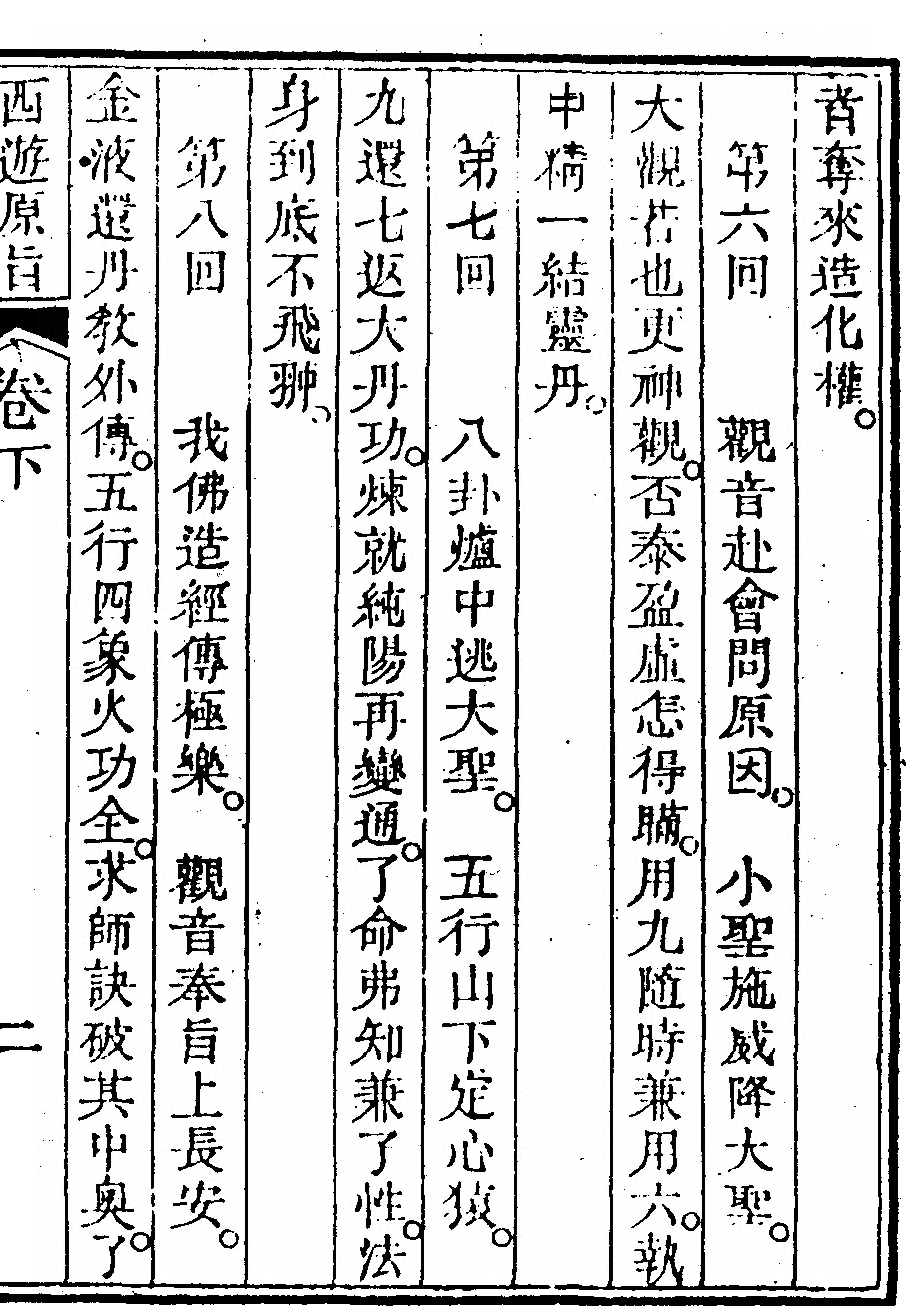 者奪來造化權。
第六回　觀音赴會問原因。　小聖施威降大聖。
大觀若也更神觀。否泰盈虛怎得瞞。用九隨時兼用六。執
中精一結靈丹。
第七回　八卦爐中逃大聖。　五行山下定心猿。
九還七返大丹功。煉就純陽再變通。了命弗知兼了性。法
身到底不飛翀。
第八回　我佛造經傳極樂。　觀音奉旨上長安。
金液還丹教外傳。五行四象火功全。求師訣破其中奧。了
西遊原旨　卷下　二